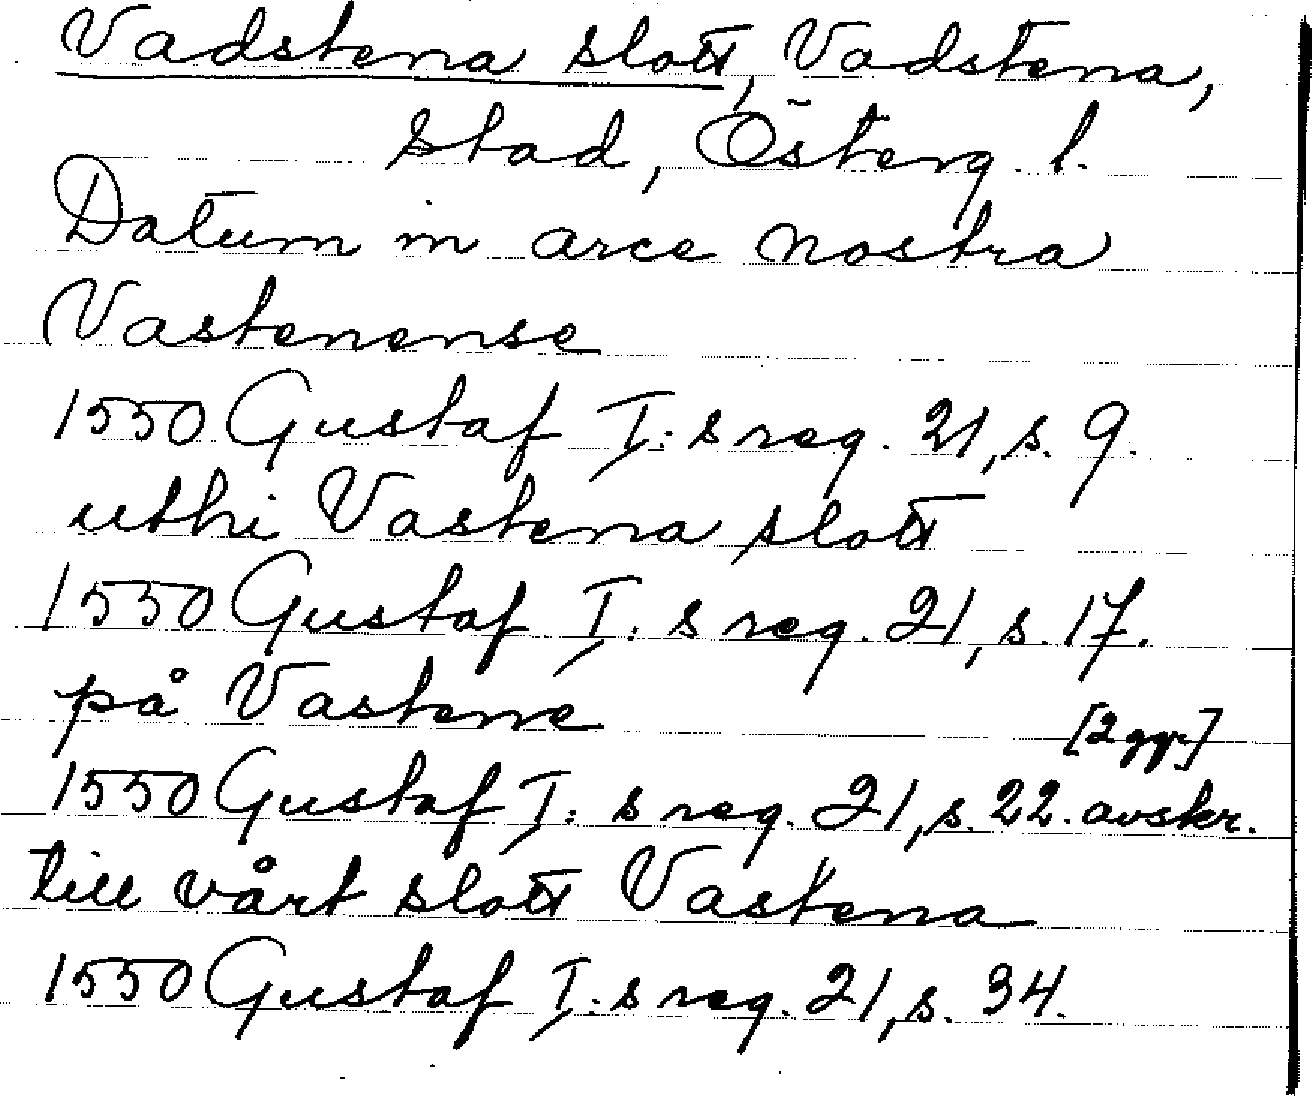 Vadstena slott, Vadstena,
stad, Österg. l.
Datum in arce nostra
Vastenense
1550 Gustaf I:s reg. 21, s. 9.
uthi Vastena slott
1550 Gustaf I:s reg. 21, s. 17.
på Vastene
[2 ggr]
1550 Gustaf I:s reg. 21, s. 22. avskr.
till vårt slott Vastena
1550 Gustaf I:s reg. 21, s. 34.